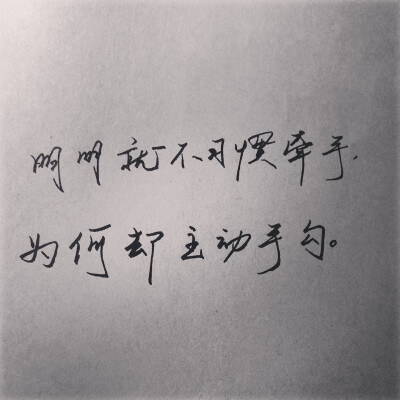 明明就不习惯牵手.
为何却主动手勾。